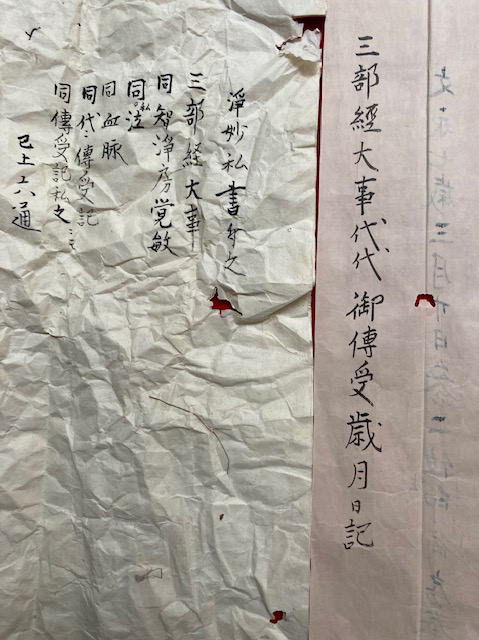 三部經大事代代御傳受歳月日記
淨妙私書之
三部經大事
同 智淨房覚敏
同私注
同血脉
同代々傳受記
同傳受記私之
已上六通